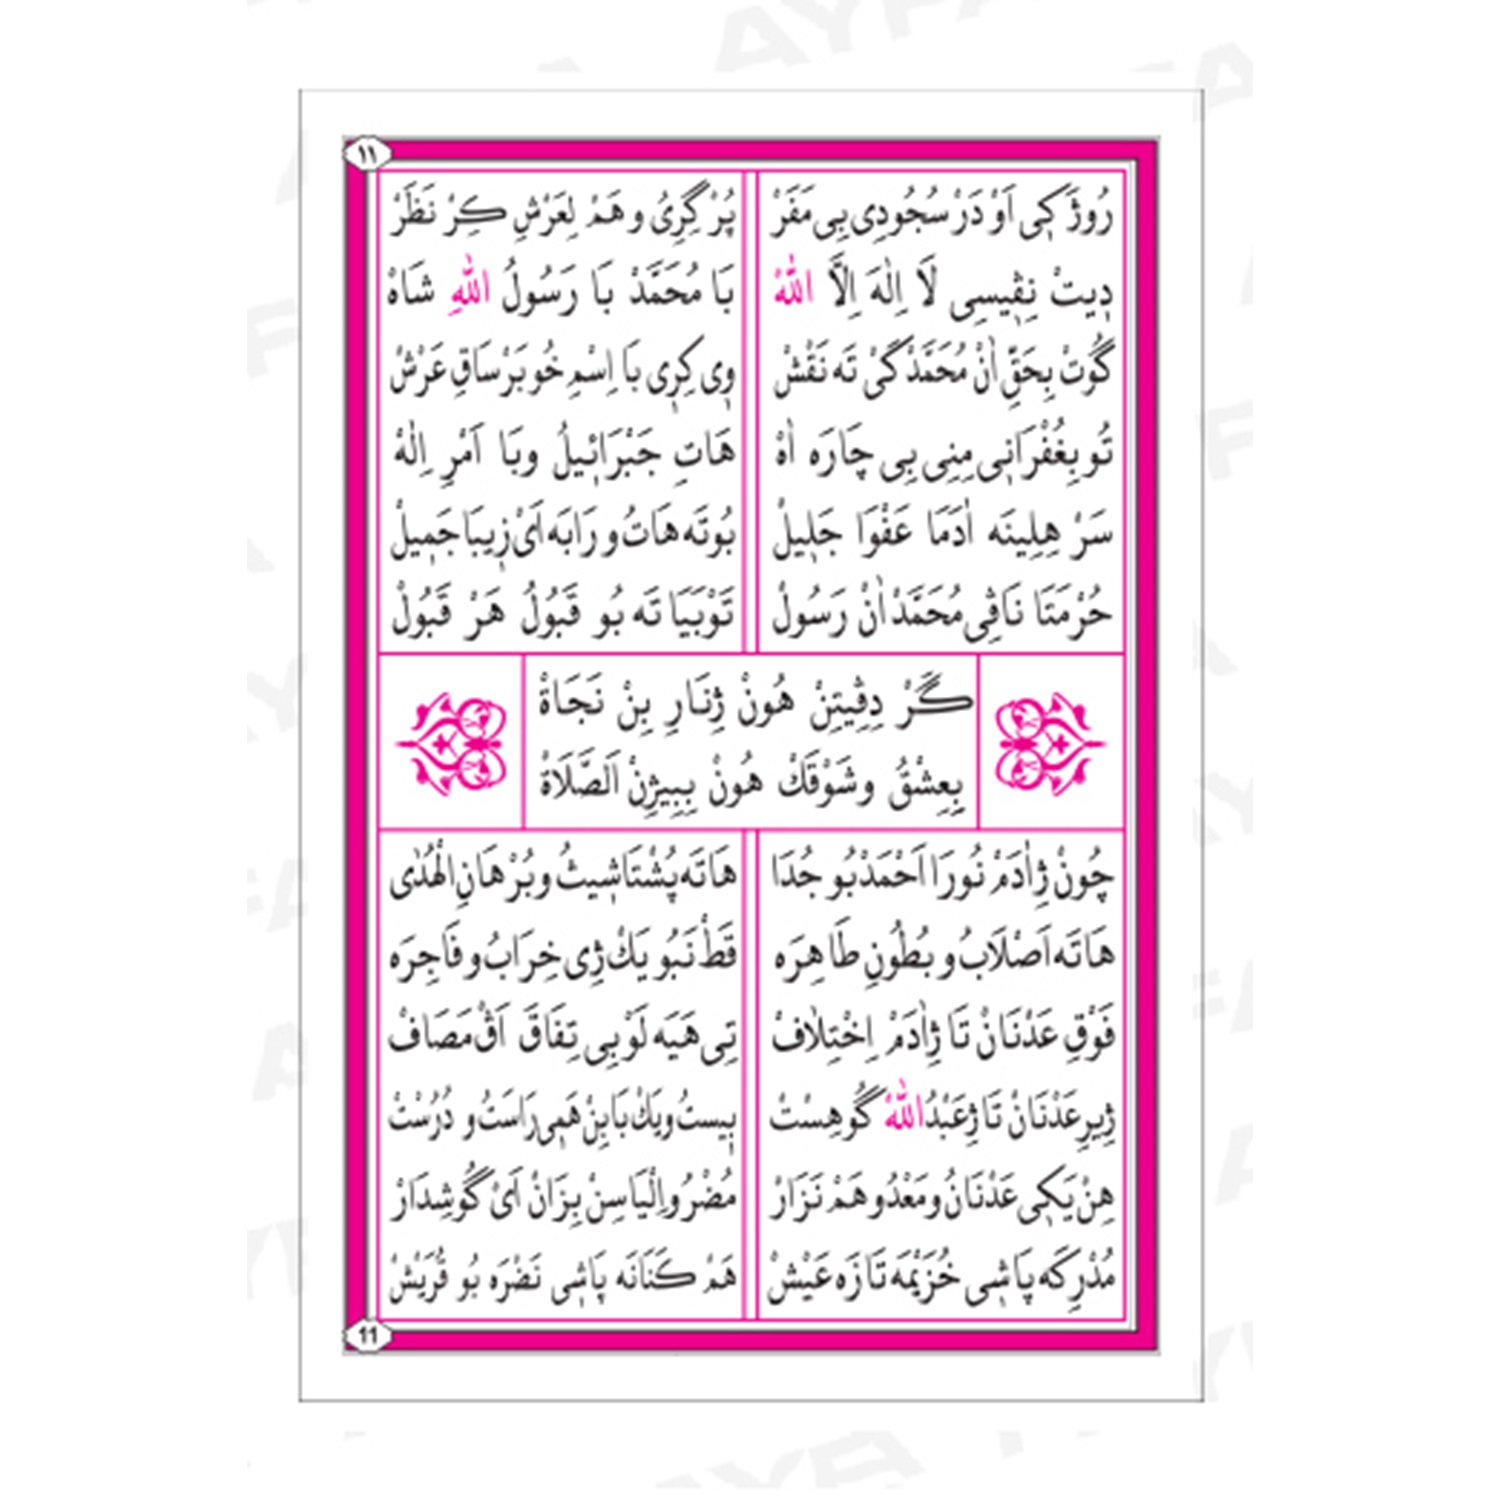 ١١
رُوژَكٖى اَوْ دَرْ سُجُودِى بِى مَفَرْ پُرْ گِرِىُ و هَمْ لِعَرْشِ كِرْ نَظَرْ
دٖيتْ نِڤِيسِى لَا اِلٰهَ اِلَّا اللّٰهُ بَا مُحَمَّدْ بَا رَسُولُ اللّٰهِ شَاهْ
گُوتْ بِحَقِّ اٰنْ مُحَمَّدْ كَىْ تَه نَقْشْ وٖى كِرٖى بَا اِسْمِ خُو بَرْ سَاقِ عَرْشْ
تُو بِغُفْرَانٖى مِنِى بِى چَارَه اٰهْ هَاتِ جَبْرَائٖيلُ وبَا اَمْرِ اِلٰهْ
سَرْ هِلِينَه اٰدَمَا عَفْوَا جَلٖيلْ بُوتَه هَاتُ و رَابَه اَىْ زٖيبَا جَمٖيلْ
حُرْمَتَا نَاڤِى مُحَمَّدْ اٰنْ رَسُولْ تَوْبَيَا تَه بُو قَبُولُ هَرْ قَبُولْ
گَرْ دِڤِيتِنْ هُونْ ژِنَارِ بِنْ نَجَاةْ
بِعِشْقُ وشَوْقَكْ هُونْ بِبِيژِنْ اَلصَّلَاةْ
چُونْ ژِاٰدَمْ نُورَا اَحْمَدْ بُو جُدَا هَاتَه پُشْتَا شٖيثُ و بُرْهَانِ الْهُدٰى
هَاتَه اَصْلَابُ و بُطُونِ طَاهِرَه قَطْ نَبُو يَكْ ژِى خِرَابُ و فَاجِرَه
فَوْقِ عَدْنَانْ تَا ژِاٰدَمْ اِخْتِلَافْ تِى هَيَه لَوْبِى تِفَاقَ اَڤْ مَصَافْ
ژِيرِ عَدْنَانْ تَا ژِعَبْدُ اللّٰهْ گُوهِسْتْ بٖيسْتُ ويَكْ بَابِنْ هَمٖى رَاسَتُ و دُرُسْتْ
هِنْ يَكٖى عَدْنَانُ ومَعْدُ و هَمْ نَزَارْ مُضْرُ واِلْيَاسِنْ بِزَانْ اَىْ گُوشِدَارْ
مُدْرِكَه پَاشٖى خُزَيْمَه تَازَه عَيْشْ هَمْ كَنَانَه پَاشٖى نَضْرَه بُو قُرَيْشْ
11